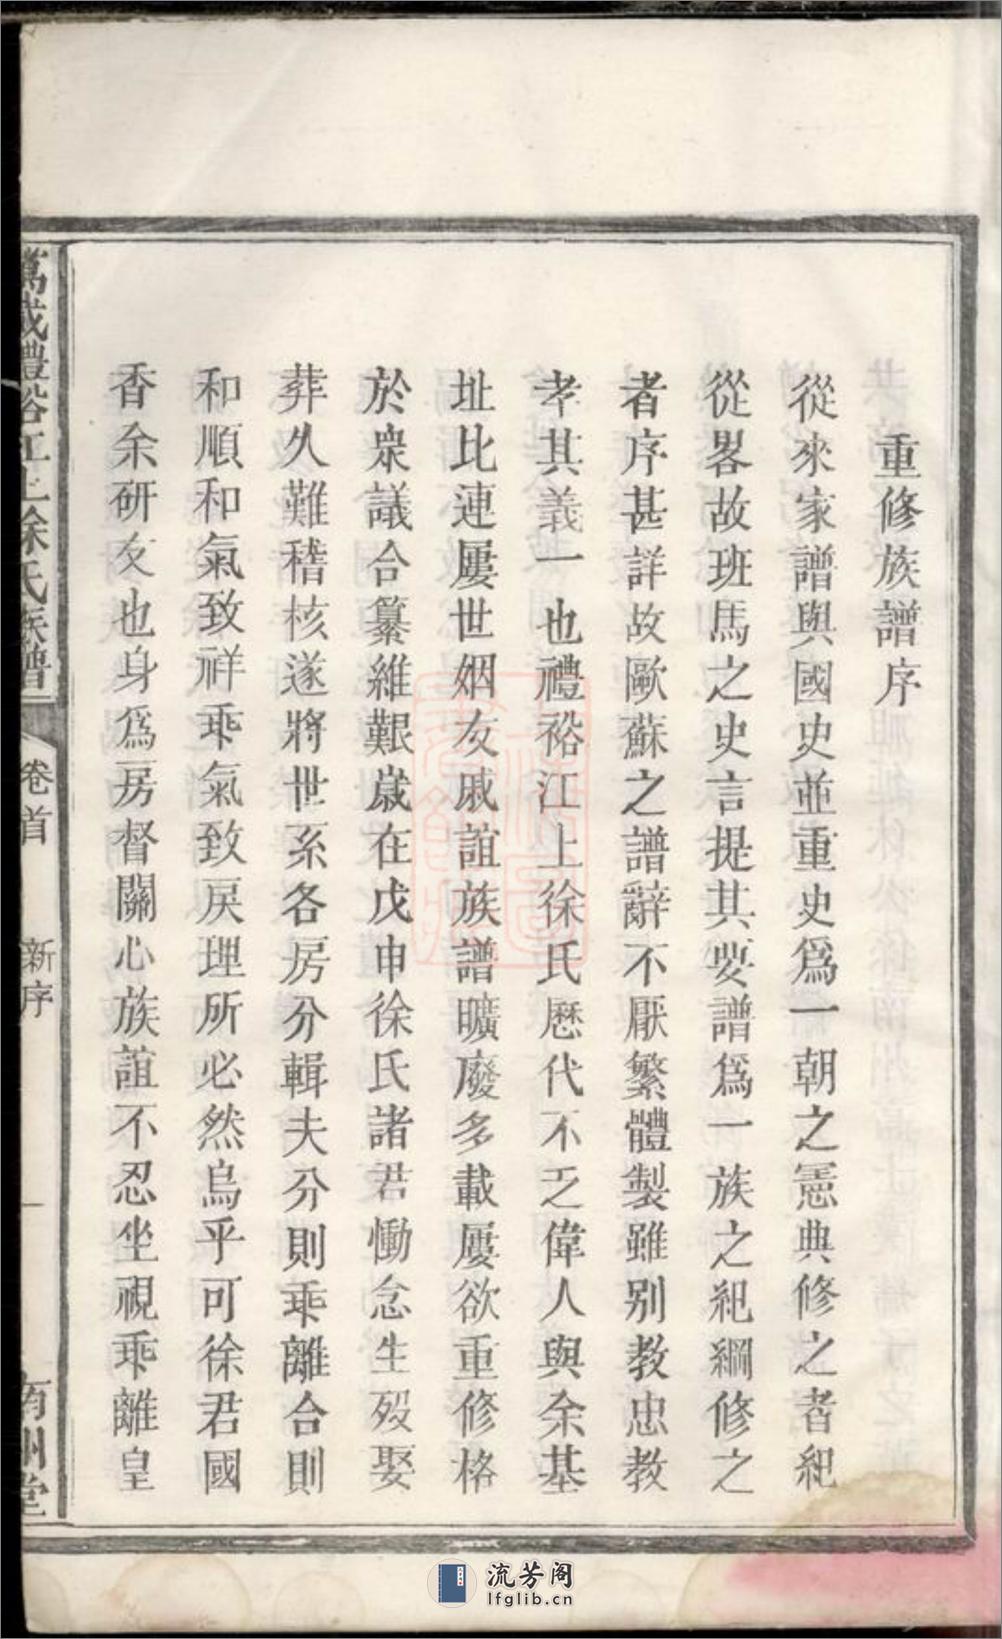 重修族譜序
從來家譜與國史並重史爲一朝之憲典修之者紀
從畧故班馬之史言提其要譜爲一族之紀綱修之
者序甚詳故歐蘇之譜辭不厭繁體製雖别教忠教
孝其義一也禮裕江上徐氏歷代不乏偉人與余基
址比連屢世姻友戚誼族譜曠廢多載屢欲重修格
於衆議合纂維艱歲在戊申徐氏諸君慟念生歿娶
葬久難稽核遂將世系各房分輯夫分則乖離合則
和順和氣致祥乖氣致戾理所必然烏乎可徐君國
香余研友也身爲房督關心族誼不忍坐視乖離皇
萬載禮裕江上徐氏族譜
卷首
新序
一
南州堂
流芳阁
lfglib.cn